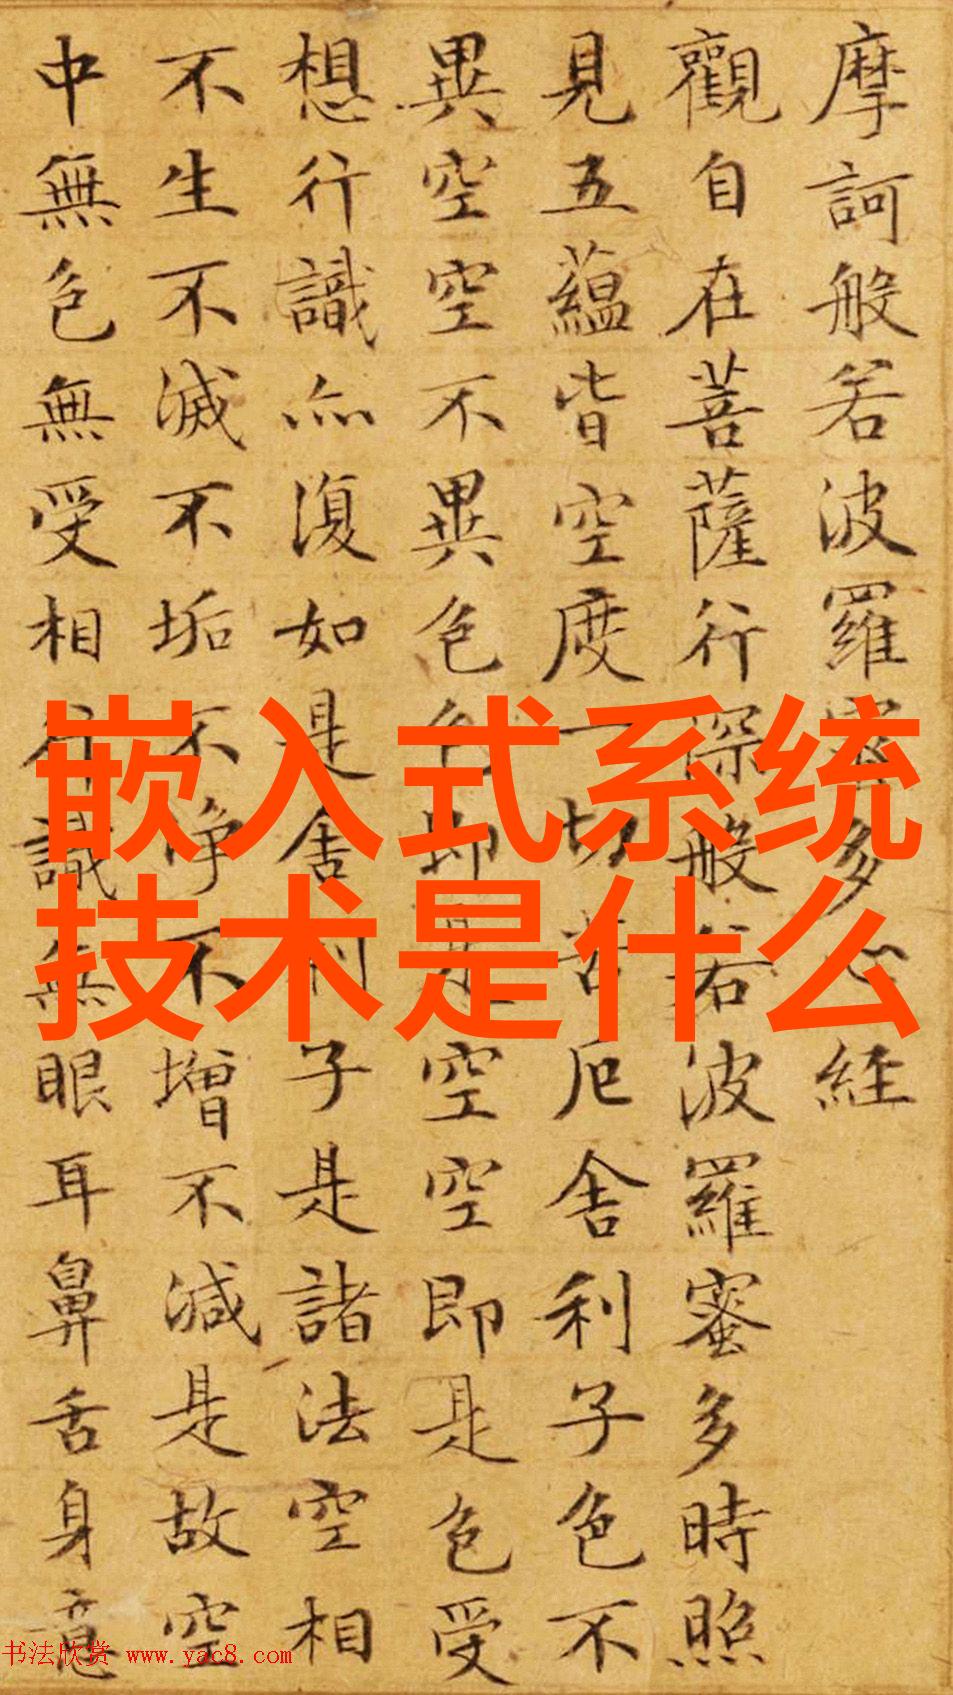 摩訶般若波羅蜜多心経
觀自在菩薩行深般若波羅蜜多時照
見五蘊皆空度一切苦厄舍利子色不
異空空不異色色即是空空即是色受
想行識亦復如是舍利子是諸法空相
不生不滅不垢不淨不增不減是故空
中無色無受相行識無眼耳鼻舌身意
嵌入式系统
技术是什么
书法欣赏 www.yac8.com